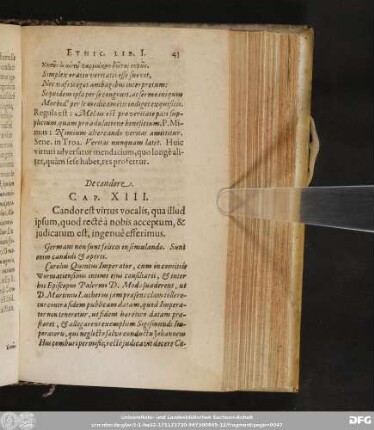 ETHIC. LIB. I. 43
Simplex oratio veritatis esse solet,
Nec vafris eget ambagibus interpretum:
Sequidem ipsa per se congruit, at sermo iniquus
Morbidus per se medicamētis indiget exquisitis.
Regula est: Melius est pro veritate pati sup-
plicium, quàm pro adulatione beneficium. P. Mi-
mus: Nimium altercando veritas amittitur.
Sene. in Troa. Veritas nunquam latet. Huic
virtuti adversatur mendacium, quo longè ali-
ter, quàm sese habet, res profertur.
De candore.
CAP. XIII.
Candor est virtus vocalis, qua illud
ipsum, quod rectè à nobis acceptum, &
judicatum est, ingenuè efferimus.
Germani non sunt felices in simulando. Sunt
enim candidi & aperti.
Carolus Quintus Imperator, cum in comitiis
Wormatiensibus intimi ejus consiliarii, & inter
hos Episcopus Palermo D. Mod. suaderent, ut
D. Martinum Lutherum jam præsentem tollere-
tur contra fidem publicam datam, quod Impera-
tor non teneretur, ut fidem hæretico datam præ-
staret, & allegarent exemplum Sigismundi Im-
peratoris, qui neglecto salvo conductu Johannem
Hus comburi permisit, rectè judicavit decere Cæ-
Universitäts- und Landesbibliothek Sachsen-Anhalt
DFG